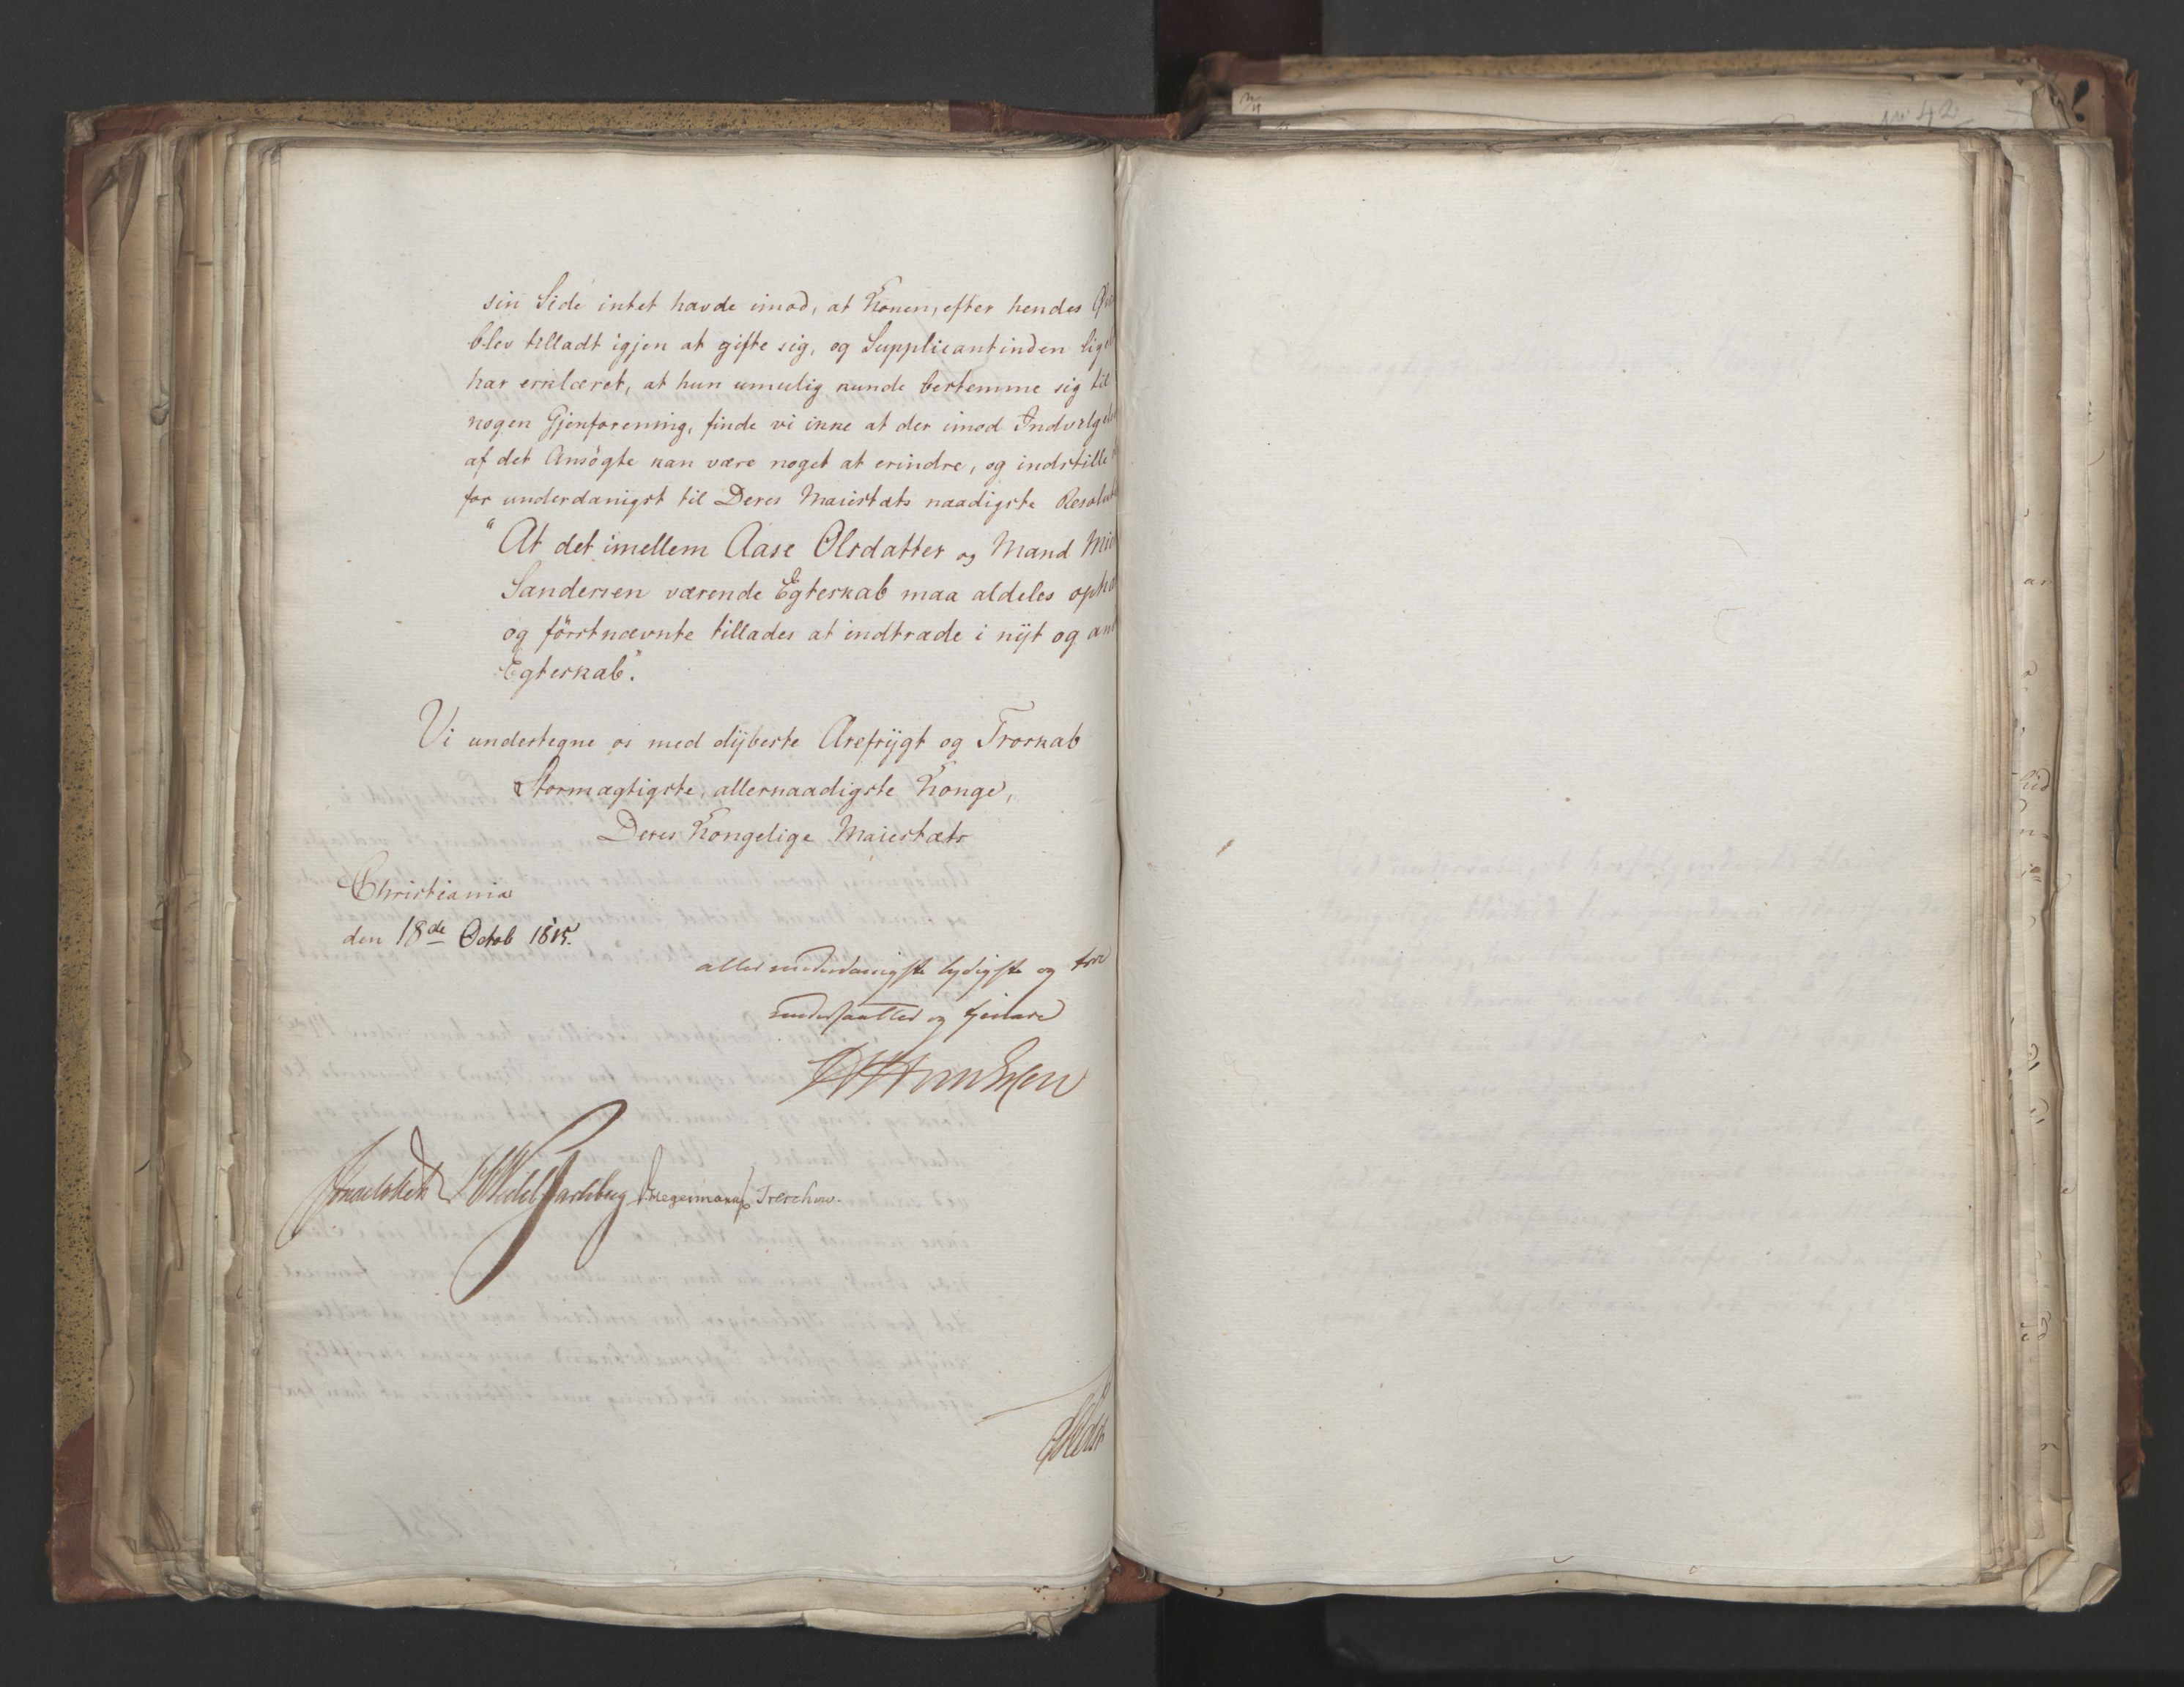 sin Side intet havde imod, at Konen, efter hendes
blev tilladt igjen at gifte sig, og Supplicantinden lige
har erklæret, at hun umulig kunde bestemme sig til
nogen Gjenforening, finde vi ikke at der imod Indvilg
af det Ansögte kan være noget at erindre, og indstille
for underdanigst til Deres Maiestæts naadigste Resolut
"At det imellem Aase Olsdatter og Mand
Sandersen værende Egteskab maa aldeles ophæ
og förstnævnte tillades at indtræde i nÿt og an
Egteskab".
Vi undertegne os med dÿbeste Ærefrÿgt og Troskab
Stormægtigste, allernaadigste Konge,
Deres Kongelige Maiestæts
Christiania
den 18de Octob 1815.
allerunderdanigste lydigste og troe
undersaatter og tjenere
Wedel Jarlsberg Hegermann Treschow.
No 42